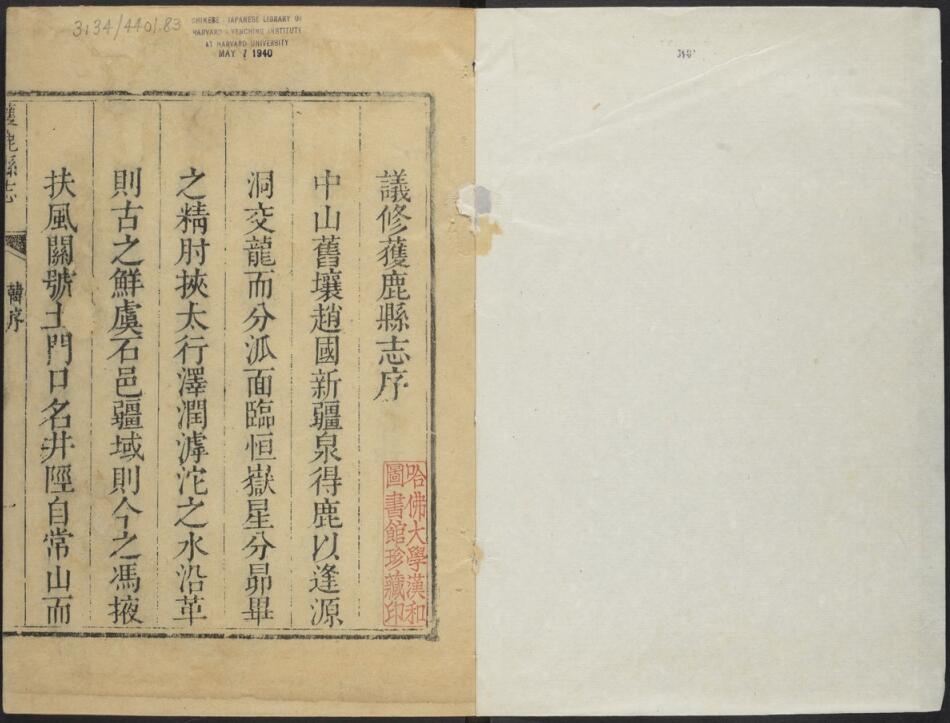 3134/4401.83
CHINESE - JAPANESE LIBRARY OF
HARVARD - YENCHING INSTITUTE
AT HARVARD UNIVERSITY
MAY 7 1940
議修獲鹿縣志序
中山舊壤趙國新疆泉得鹿以逢源
洞交龍而分派面臨恒嶽星分昴畢
之精肘挾太行澤潤滹沱之水沿革
則古之鮮虞石邑疆域則今之馮掖
扶風關號土門口名井陘自常山而
哈佛大學漢和
圖書館珍藏印
獲鹿縣志
舊序
一